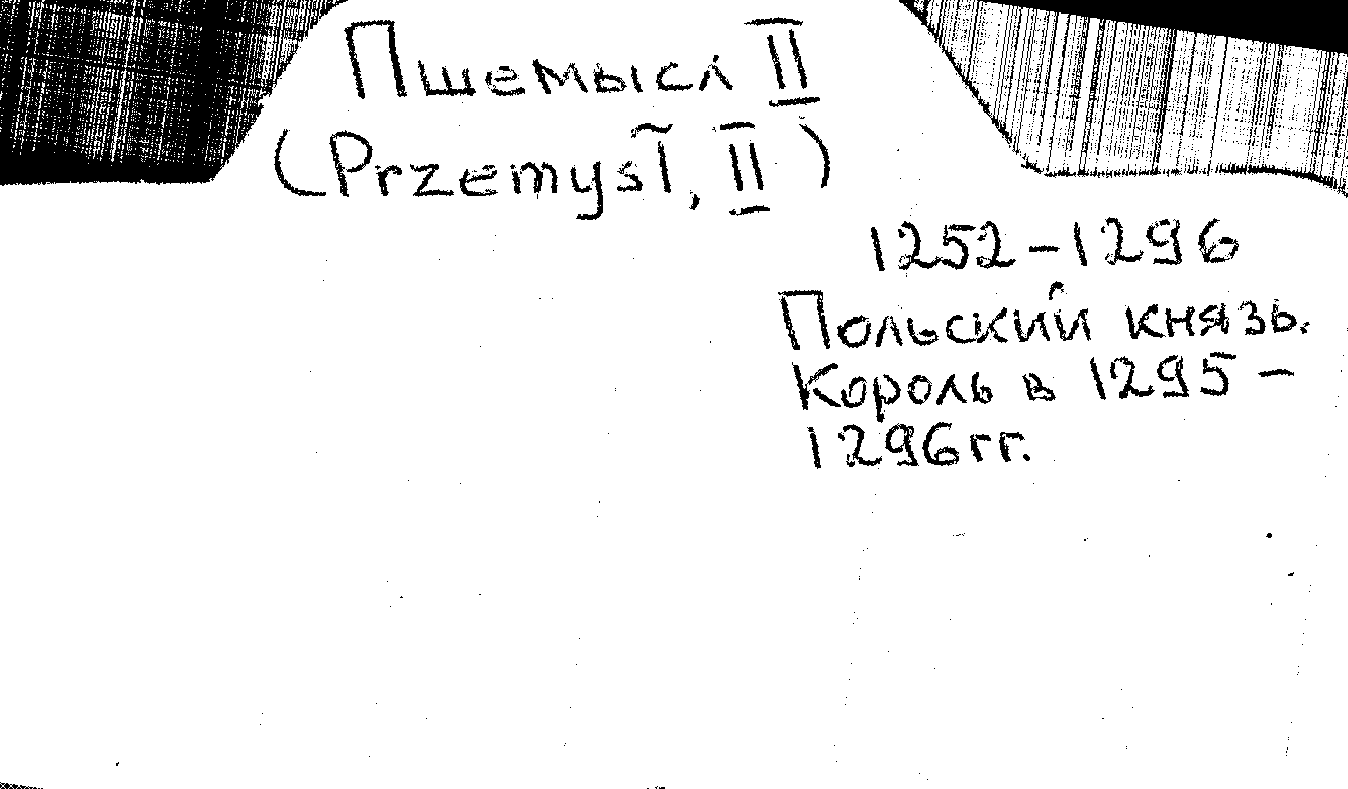 Пшемысл II
(Przemysł, II)
1252-1296
Польский князь.
Король в 1295-
1296гг.